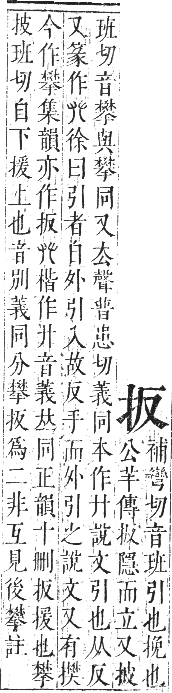 扳
補彎切音班引也挽也
公羊傳扳隱而立又披
班切音攀與攀同又去聲普患切義同本作廾說文引也从反
又篆作𠬜徐曰引者自外引入故反手而外引之說文又有𢸅
今作攀集韻亦作扳𠬜楷作廾音義𠀤同正韻十刪扳援也攀
披班切自下援上也音別義同分攀扳為二非互見後攀註